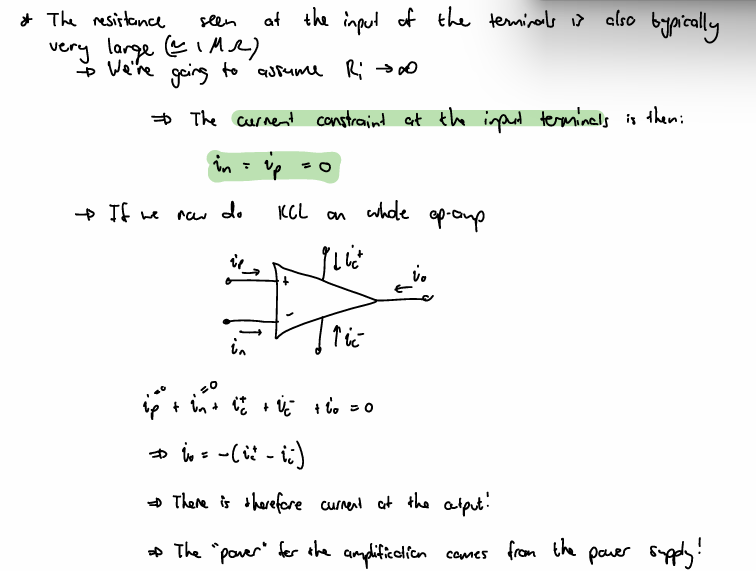 * The resistance seen at the input of the terminals is also typically
very large (≃ 1 MΩ)
→ We're going to assume Ri → ∞
⇒ The current constraint at the input terminals is then:
in = ip = 0
→ If we now do KCL on whole op-amp
ip → + ↓ ic+ ← io
in → - ↑ ic-
ip =0 + in =0 + ic+ + ic- + io = 0
⇒ io = -(ic+ - ic-)
⇒ There is therefore current at the output!
⇒ The "power" for the amplification comes from the power supply!